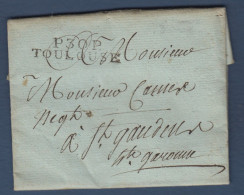 P30P
TOULOUSE
Monsieur
Monsieur
Negt
à St gaudens
hte garonne